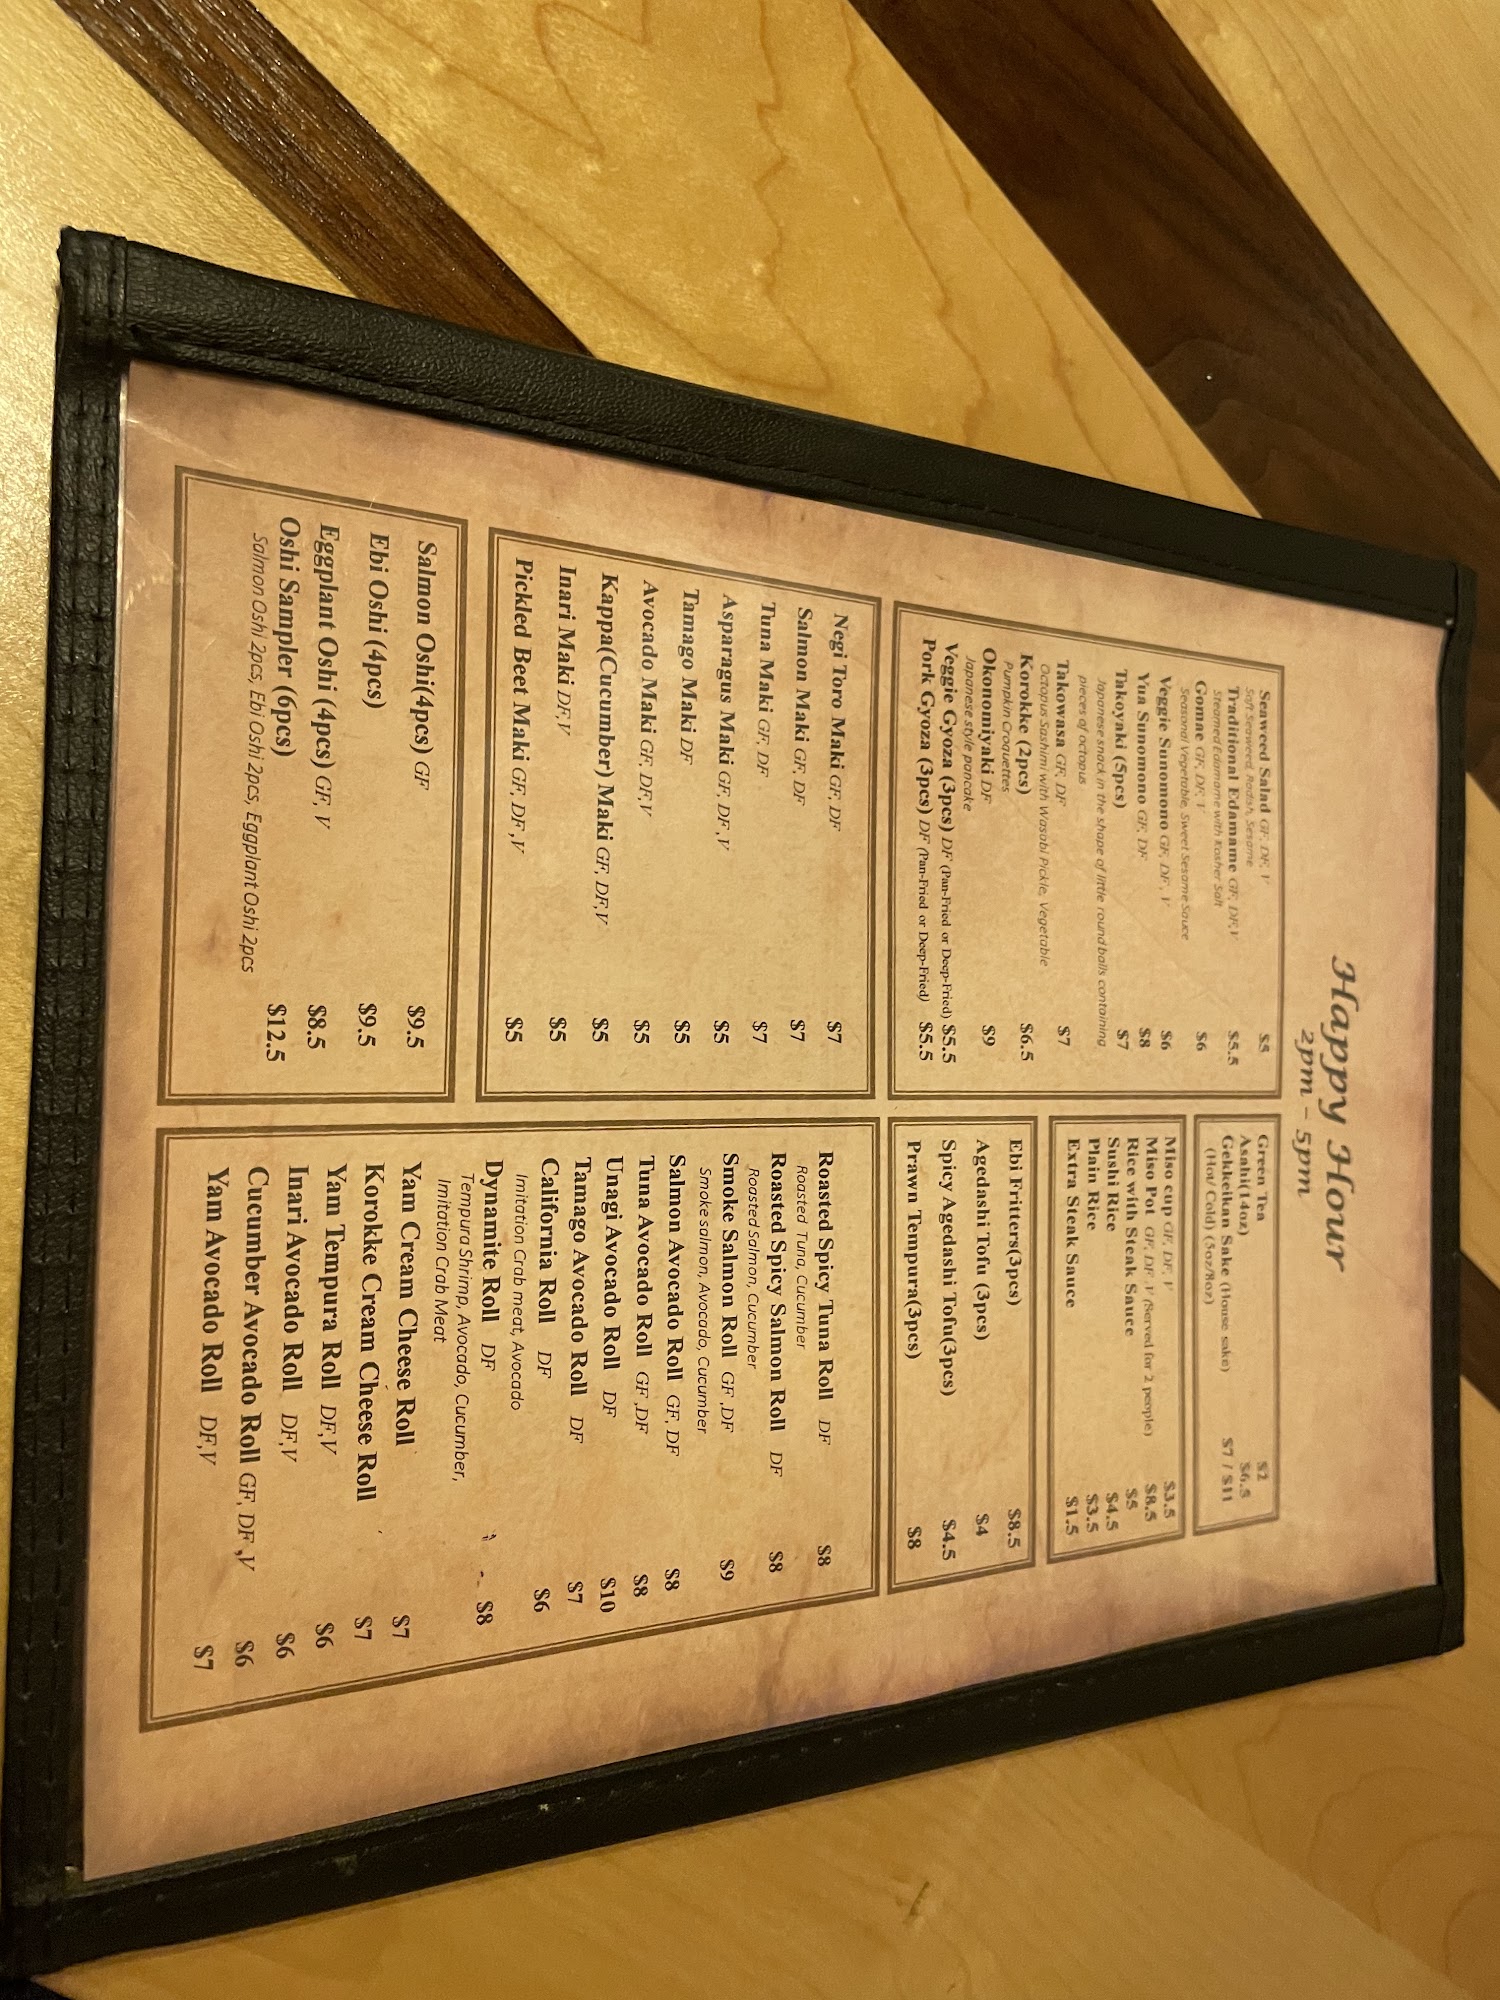 Happy Hour
2pm – 5pm
Seaweed Salad GF, DF, V $5
Soft Seaweed, Radish, Sesame
Traditional Edamame GF, DF,V $5.5
Steamed Edamame with Kosher Salt
Gomae GF, DF, V $6
Seasonal Vegetable, Sweet Sesame Sauce
Veggie Sunomono GF, DF, V $6
Yua Sunomono GF, DF $8
Takoyaki (5pcs) $7
Japanese snack in the shape of little round balls containing
pieces of octopus
Takowasa GF, DF $7
Octopus Sashimi with Wasabi Pickle, Vegetable
Korokke (2pcs) $6.5
Pumpkin Croquettes
Okonomiyaki DF $9
Japanese style pancake
Veggie Gyoza (3pcs) DF (Pan-Fried or Deep-Fried) $5.5
Pork Gyoza (3pcs) DF (Pan-Fried or Deep-Fried) $5.5
Negi Toro Maki GF, DF $7
Salmon Maki GF, DF $7
Tuna Maki GF, DF $7
Asparagus Maki GF, DF ,V $5
Tamago Maki DF $5
Avocado Maki GF, DF,V $5
Kappa(Cucumber) Maki GF, DF,V $5
Inari Maki DF,V $5
Pickled Beet Maki GF, DF ,V $5
Salmon Oshi(4pcs) GF $9.5
Ebi Oshi (4pcs) $9.5
Eggplant Oshi (4pcs) GF, V $8.5
Oshi Sampler (6pcs) $12.5
Salmon Oshi 2pcs, Ebi Oshi 2pcs, Eggplant Oshi 2pcs
Green Tea $2
Asahi(14oz) $6.5
Gekkeikan Sake (House sake) $7 / $11
(Hot/ Cold) (5oz/8oz)
Miso cup GF, DF, V $3.5
Miso Pot GF, DF ,V (Served for 2 people) $8.5
Rice with Steak Sauce $5
Sushi Rice $4.5
Plain Rice $3.5
Extra Steak Sauce $1.5
Ebi Fritters(3pcs) $8.5
Agedashi Tofu (3pcs) $4
Spicy Agedashi Tofu(3pcs) $4.5
Prawn Tempura(3pcs) $8
Roasted Spicy Tuna Roll DF $8
Roasted Tuna, Cucumber
Roasted Spicy Salmon Roll DF $8
Roasted Salmon, Cucumber
Smoke Salmon Roll GF ,DF $9
Smoke salmon, Avocado, Cucumber
Salmon Avocado Roll GF, DF $8
Tuna Avocado Roll GF ,DF $8
Unagi Avocado Roll DF $10
Tamago Avocado Roll DF $7
California Roll DF $6
Imitation Crab meat, Avocado
Dynamite Roll DF $8
Tempura Shrimp, Avocado, Cucumber,
Imitation Crab Meat
Yam Cream Cheese Roll $7
Korokke Cream Cheese Roll $7
Yam Tempura Roll DF,V $6
Inari Avocado Roll DF,V $6
Cucumber Avocado Roll GF, DF ,V $6
Yam Avocado Roll DF,V $7